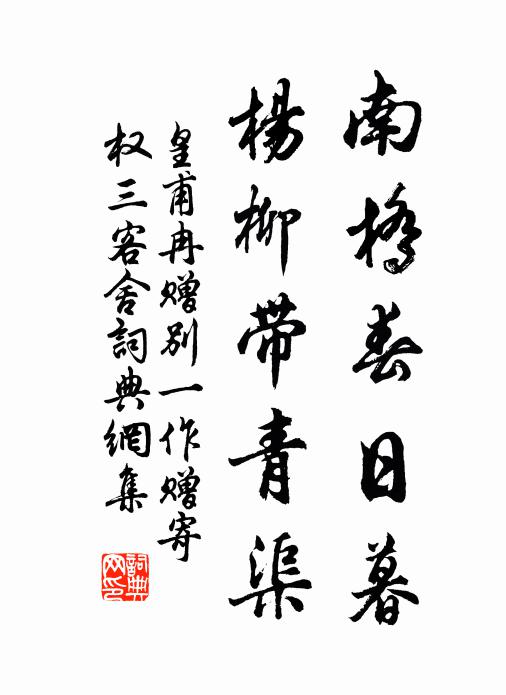 南橋春日暮
楊柳帶青渠
皇甫冉贈別一作贈寄
权三客舍詞典網集
詞典
网印